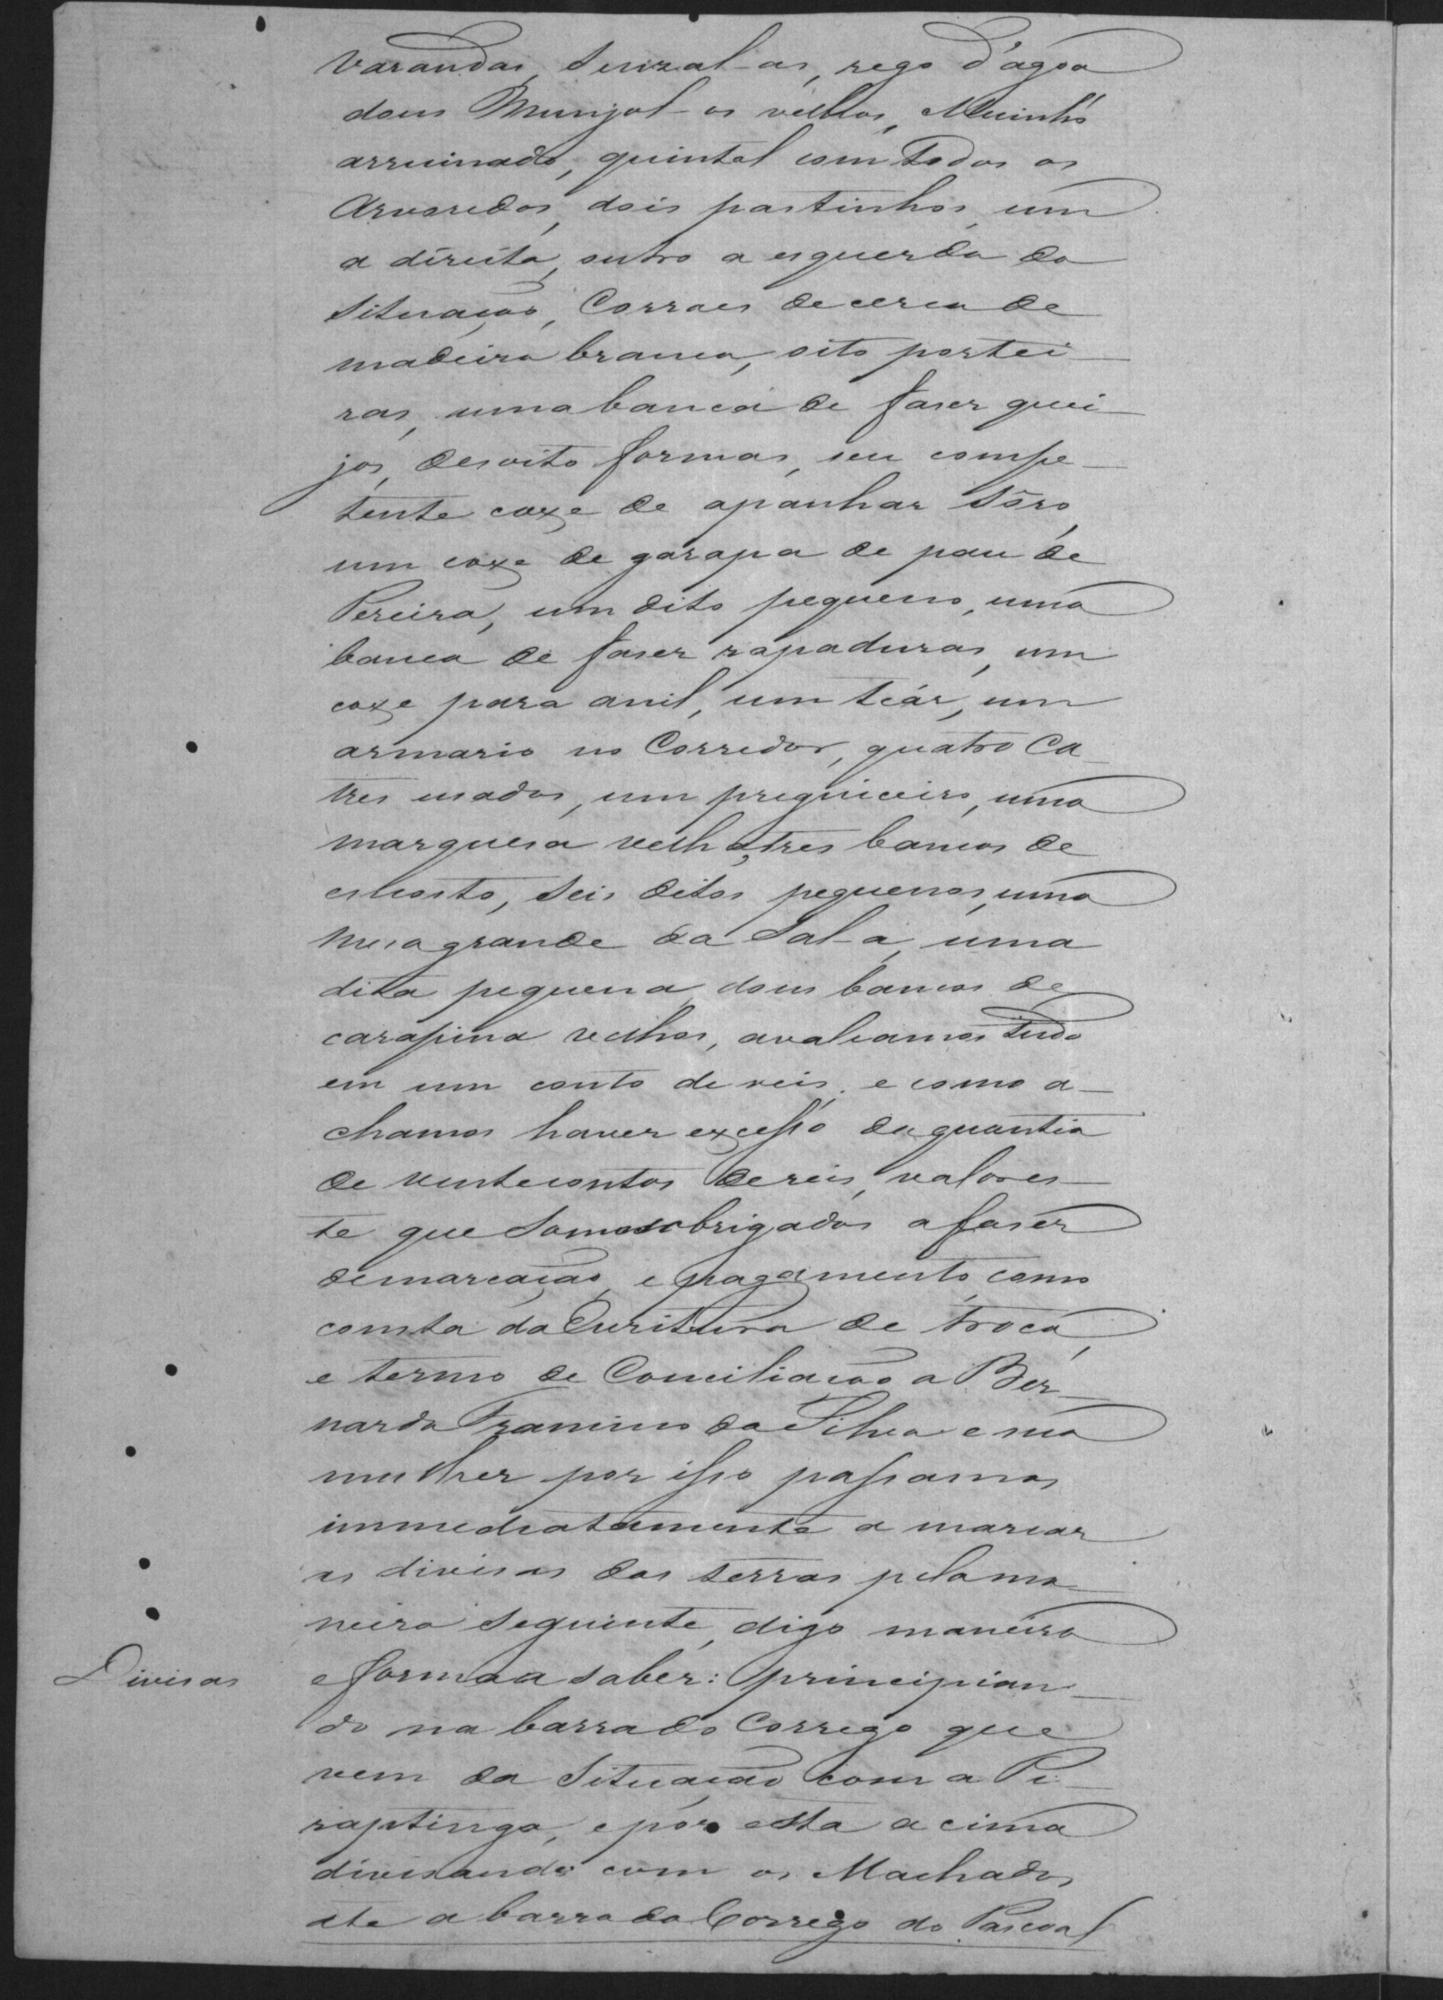 varandas, senzal-as, rego d'agoa
dous Munjol-os velhos, Muinho
arruinado, quintal com todos os
Arvoredos, dois pastinhos, um
a direita, outro a esquerda da
Situação, Corraes de cerca de
madeira branca, oito portei-
ras, uma banca de faser quei-
jos, desoito formas, seu compe-
tente coxe de apanhar sôro,
um coxe de garapa de pau de
Pereira, um dito pequeno, uma
banca de faser rapaduras, um
coxe para anil, um teár, um
armario no Corredor, quatro Ca-
tres usados, um preguiceiro, uma
marquesa velha, tres bancos de
encosto, seis ditos pequenos, uma
mesa grande da Sal-a, uma
dita pequena, dous bancos de
carapina velhos, avaliamos tudo
em um conto de reis, e como a-
chamos haver excesso da quantia
de vinte contos de reis, valor es-
te que somos obrigados a faser
demarcação, e pagamento, como
consta da Escritura de troca,
e termo de Conciliação a Ber-
nardo Francisco da Silva e sua
mulher por isso passamos
immediatamente a marcar
as divisas das terras pela ma-
neira seguinte, digo maneira
Divisas
e forma a saber: principian-
do na barra do Corrego que
vem da Situação com a Pi-
rapitinga, e por esta acima
divisando com os Machados
ate a barra do Corrego do Pascoal